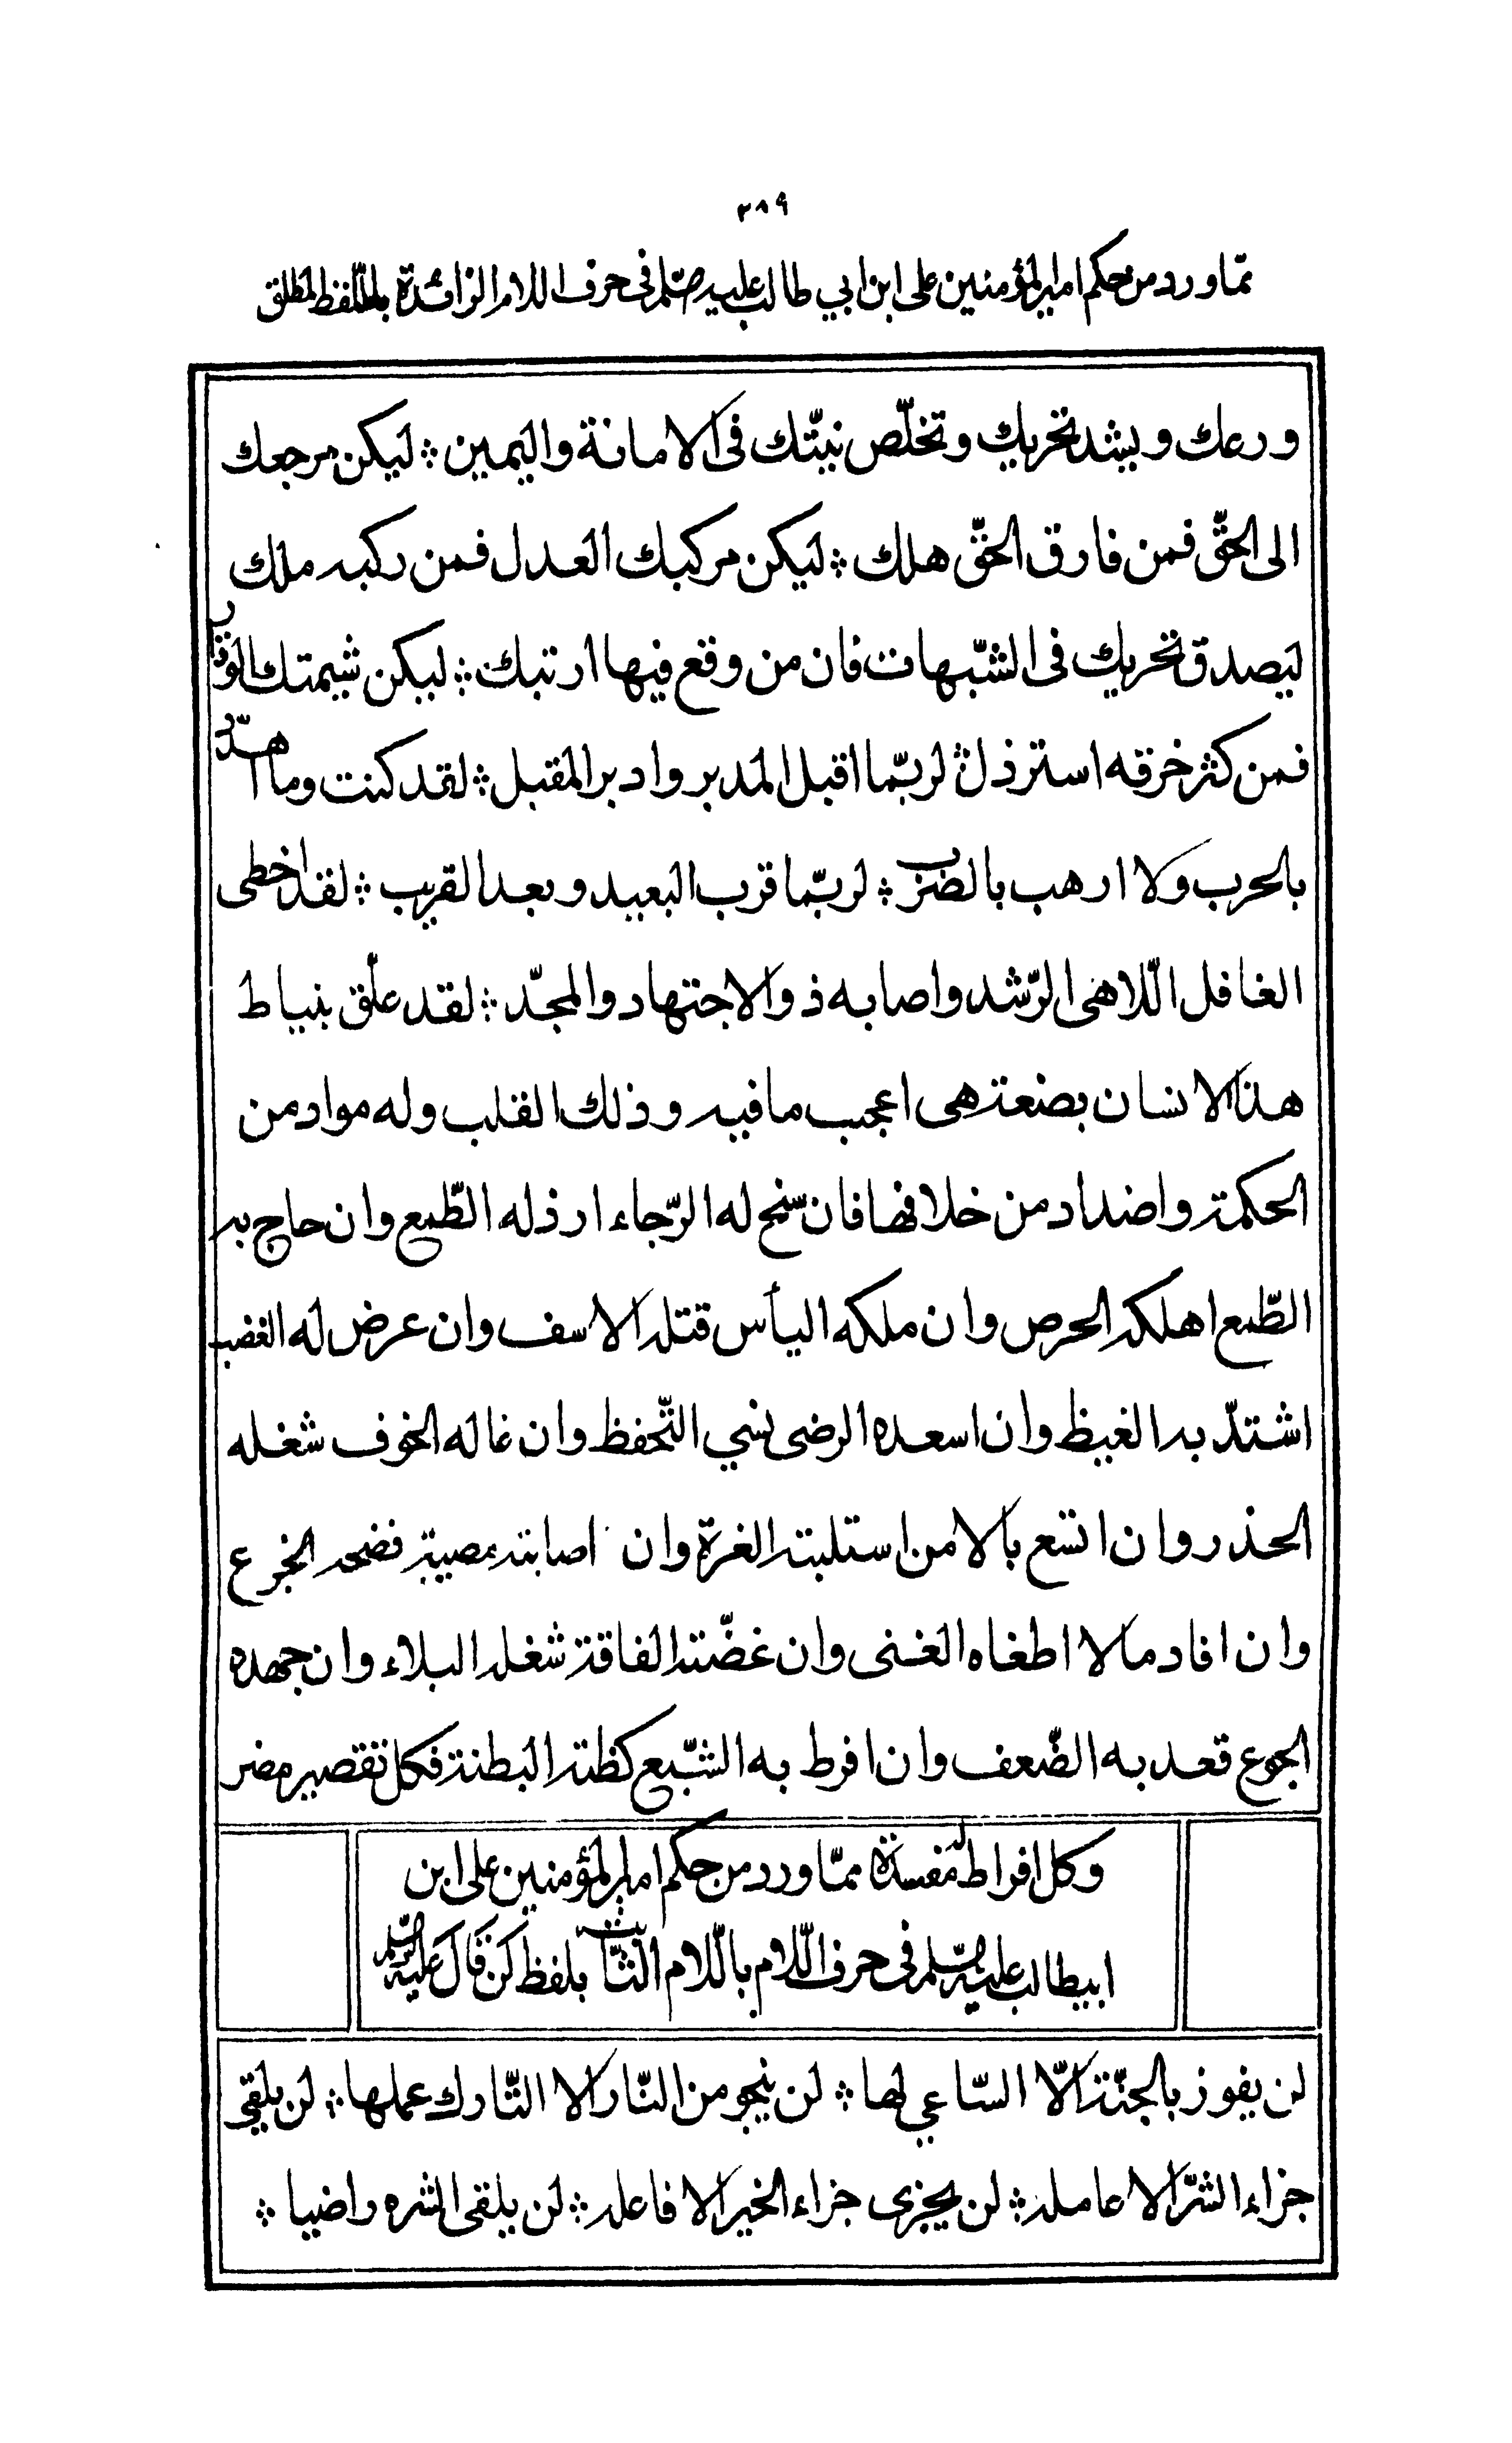 ٣٨٩
ممّا ورد من حكم امير المؤمنين على ابن ابي طالب عليه صلم فى حرف اللام الزائدة باللّفظ المطلق
ورعك ويشد تحريك وتخلّص نيّتك فى الامانة واليمين ؞ ليكن مرجعك
الى الحقّ فمن فارق الحقّ هلك ؞ ليكن مركبك العدل فمن ركبه ملك
ليصدق تحريك فى الشّبهات فان من وقع فيها ارتبك ؞ ليكن شيمتك الوقار
فمن كثر خرقه استرذل ؞ لربّما اقبل المدبر وادبر المقبل ؞ لقد كنت وما اهدّد
بالحرب ولا ارهب بالضرب ؞ لربّما قرب البعيد وبعد القريب ؞ لقد اخطى
الغافل الّلاهى الرّشد واصابه ذو الاجتهاد والمجدّ ؞ لقد علّق بنياط
هذا الانسان بضعة هى اعجب ما فيه وذلك القلب وله مواد من
الحكمة واضداد من خلافها فان سنح له الرّجاء ارذله الطّمع وان حاج به
الطّمع اهلكه الحرص وان ملكه اليأس قتله الاسف وان عرض له الغضب
اشتدّ به الغيظ وان اسعده الرضى نسي التّحفظ وان غاله الخوف شغله
الحذر وان اتسع بالامن استلبته الغرة وان اصابته مصيبة فضحه الجزع
وان افاد مالا اطغاه الغنى وان غضّته الفاقة شغله البلاء وان جهده
الجوع قعد به الضّعف وان افرط به الشّبع كظته البطنة فكل تقصير مضر
وكل افراط له مفسدة ممّا ورد من حكم امير المؤمنين على ابن
ابيطالب عليه صلّم فى حرف اللّام باللّام الثّابت بلفظ لن قال عليه السّلم
لن يفوز بالجنّة الّا السّاعي لها ؞ لن ينجو من النّار الا التّارك عملها ؞ لن يلقى
جزاء الشرّ الا عامله ؞ لن يجزى جزاء الخير الا فاعله ؞ لن يلقى الشره راضيا ؞